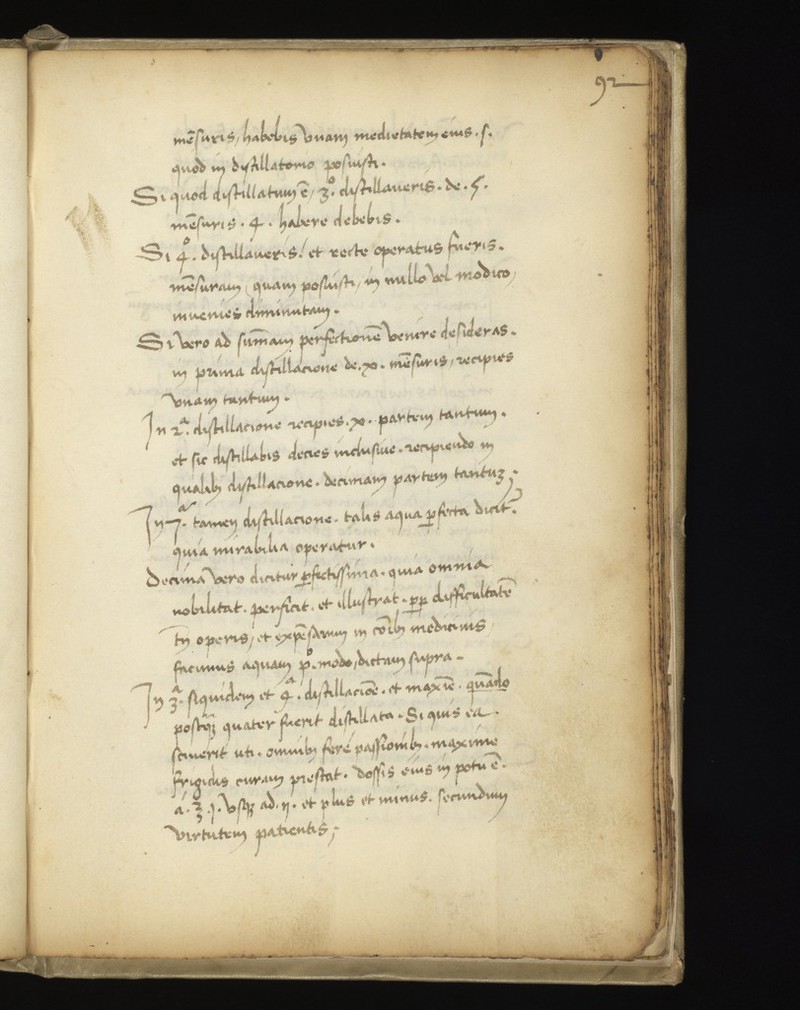 92
mēsuris, habebis vnam medietatem eius .s.
quod in distillatorio posuisti.
Si quod distillatum ē, 3º. distillaueris. de. 5.
mēsuris. 4. habere debebis.
Si 4º. distillaueris! et recte operatus fueris.
mēsuram, quam posuisti, in nullo vel modico,
inuenies diminutam.
Si vero ad sum̄am perfectionē venire desideras.
in prima distillacione de .x. mēsuris, recipies
vnam tantum.
In 2ª. distillacione recipies .x. partem tantum.
et sic distillabis decies inclusiue. recipiendo in
qualibꝫ distillacione. decimam partem tantuꝫ;
In 7ª. tamen distillacione. talis aqua ꝑfecta dicit᷑.
quia mirabilia operatur.
Decima vero dicitur ꝑfectissima. quia omnia
nobilitat. perficit. et illustrat. ꝓꝑ difficultatē
tn̄ operis, et expēsarum in cōibꝫ medicinis,
facimus aquam pº. modo, dictam supra.
In 3ª. siquidem et 4ª. distillaciōe. et maxīe. quando
postqꝫ quater fuerit distillata. Si quis ea.
sciuerit uti. omnibꝫ feré passionibꝫ. maxime
frigidis curam prestat. Dossis eius in potu ē.
á. ℥. j. vsqꝫ ad. ij. et plus et minus. secundum
virtutem patientis;